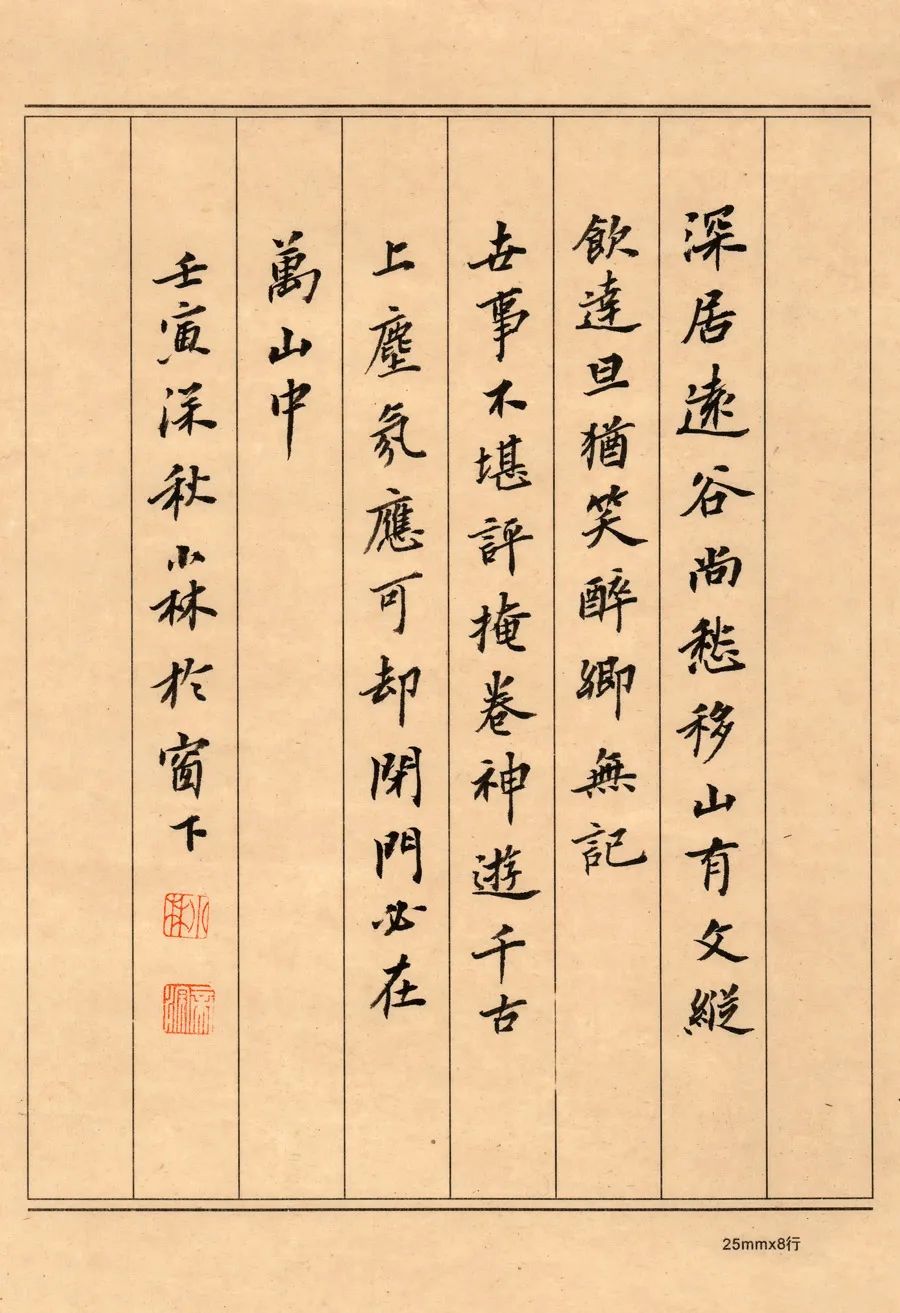 深居遠谷尚愁移山有文縱
飲達旦猶笑醉卿無記
世事不堪評掩卷神遊千古
上塵氛應可却閉門必在
萬山中
壬寅深秋小林於窗下
25mmx8行